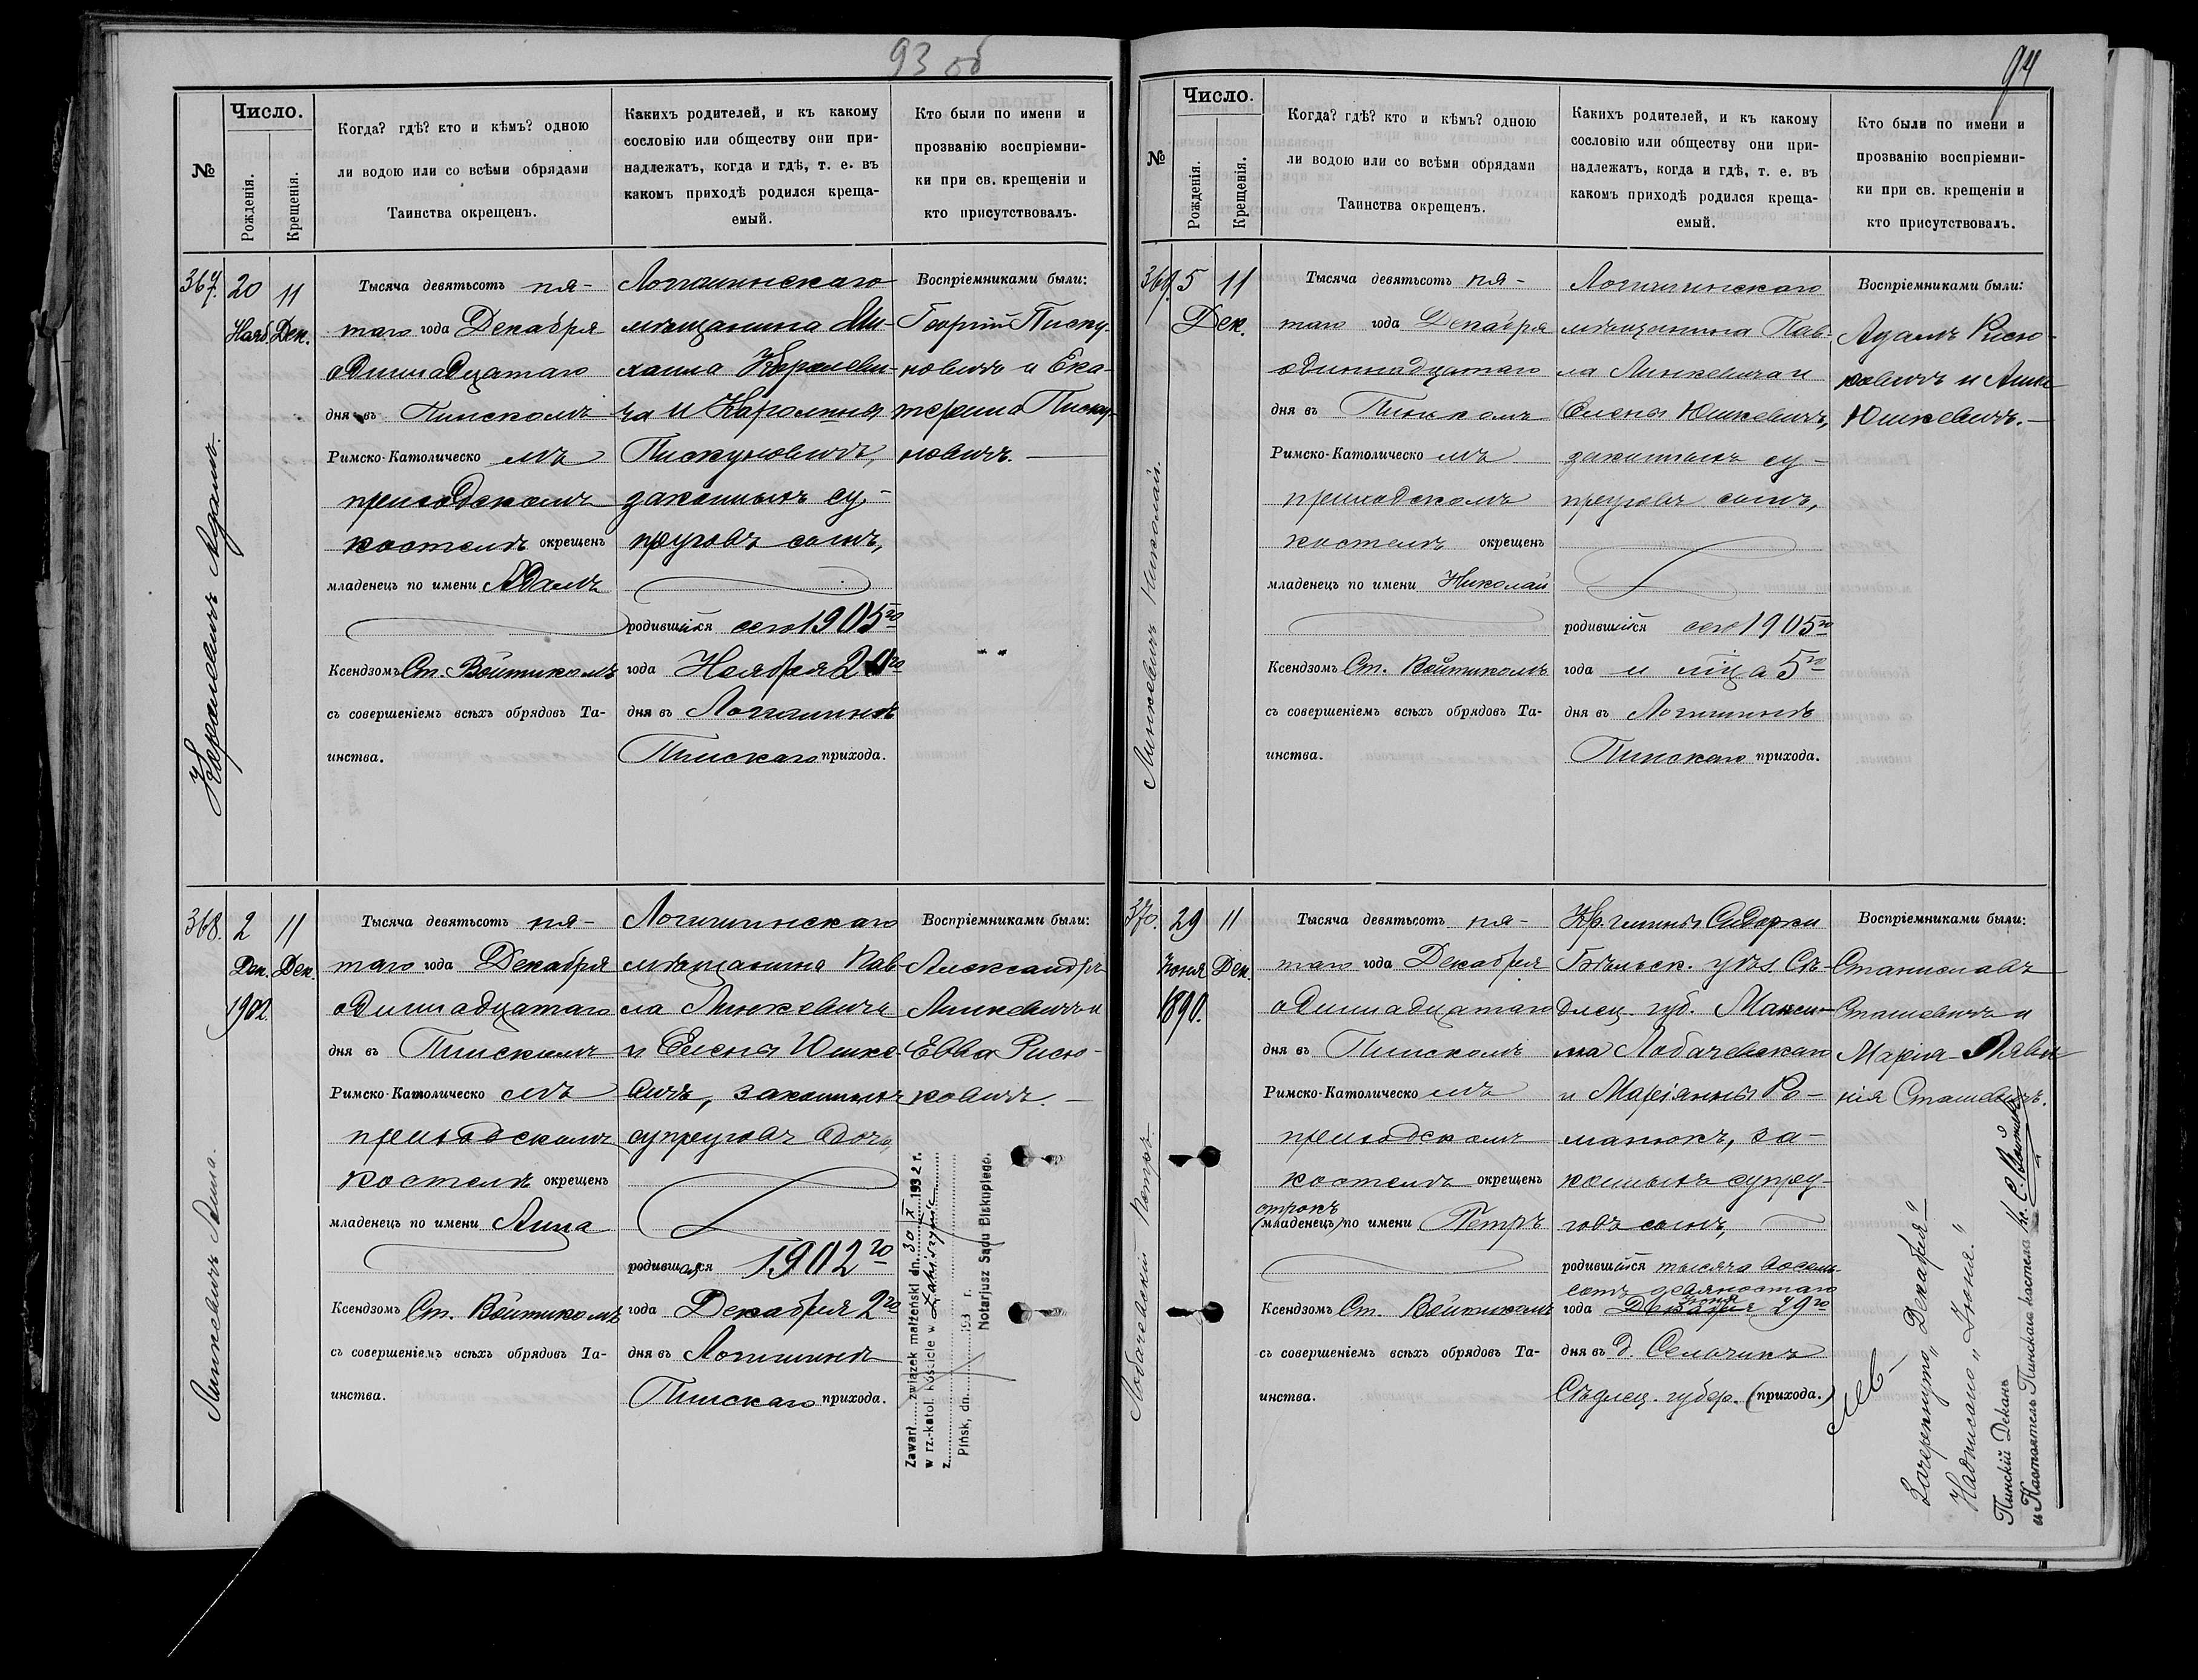 93 об
№
Число.
Рожденія.
Крещенія.
Когда? гдѣ? кто и кѣмъ? одною
ли водою или со всѣми обрядами
Таинства окрещенъ.
Какихъ родителей, и къ какому
сословію или обществу они при-
надлежатъ, когда и гдѣ, т. е. въ
какомъ приходѣ родился креща-
емый.
Кто были по имени и
прозванію воспріемни-
ки при св. крещеніи и
кто присутствовалъ.
367.
20
Нояб.
11
Дек.
Адамъ.
Тысяча девятьсотъ пя-
таго года Декабря
одиннадцатаго
дня въ Пинскомъ
Римско-Католическо мъ
приходскомъ
костелѣ окрещенъ
младенецъ по имени Адамъ
Ксендзомъ Ст. Войтикомъ
съ совершеніемъ всѣхъ обрядовъ Та-
инства.
Логишинскаго
мѣщанина Ми-
хаила
ча и Каролины
Пискуновичъ,
законныхъ су-
пруговъ сынъ,
родившійся сего 1905го
года Ноября 20го
дня въ Логишинѣ
Пинскаго прихода.
Воспріемниками были:
Георгій Писку-
новичъ и Ека-
терина Писку-
новичъ.
368.
2
Дек.
1902.
11
Дек.
Линкевичъ Анна.
Тысяча девятьсотъ пя-
таго года Декабря
одиннадцатаго
дня въ Пинскомъ
Римско-Католическо мъ
приходскомъ
костелѣ окрещенъ
младенецъ по имени Анна
Ксендзомъ Ст. Войтикомъ
съ совершеніемъ всѣхъ обрядовъ Та-
инства.
Логишинскаго
мѣщанина Пав-
ла Линкевича
и Елены Юшке-
вичъ, законныхъ
супруговъ дочь,
родившаяся 1902го
года Декабря 2го
дня въ Логишинѣ
Пинскаго прихода.
Воспріемниками были:
Александръ
Линкевичъ и
Евва Рисю-
ковичъ.
Zawarł związek małżeński dn. 30/X 1932 r.
w rz.-katol. kościele w
z
Pińsk, dn. 193 r.
Notarjusz Sądu Biskupiego.
94
№
Число.
Рожденія.
Крещенія.
Когда? гдѣ? кто и кѣмъ? одною
ли водою или со всѣми обрядами
Таинства окрещенъ.
Какихъ родителей, и къ какому
сословію или обществу они при-
надлежатъ, когда и гдѣ, т. е. въ
какомъ приходѣ родился креща-
емый.
Кто были по имени и
прозванію воспріемни-
ки при св. крещеніи и
кто присутствовалъ.
369.
5
11
Дек.
Линкевичъ Николай.
Тысяча девятьсотъ пя-
таго года Декабря
одиннадцатаго
дня въ Пинскомъ
Римско-Католическо мъ
приходскомъ
костелѣ окрещенъ
младенецъ по имени Николай
Ксендзомъ Ст. Войтикомъ
съ совершеніемъ всѣхъ обрядовъ Та-
инства.
Логишинскаго
мѣщанина Пав-
ла Линкевича и
Елены Юшкевичъ,
законныхъ су-
пруговъ сынъ,
родившійся сего 1905го
года и мца 5го
дня въ Логишинѣ
Пинскаго прихода.
Воспріемниками были:
Адамъ Рисю-
ковичъ и Анна
Юшкевичъ.
370.
29
Іюня
1890.
11
Дек.
Лобачевскій Петръ
Тысяча девятьсотъ пя-
таго года Декабря
одиннадцатаго
дня въ Пинскомъ
Римско-Католическо мъ
приходскомъ
костелѣ окрещенъ
отрокъ
(младенецъ) по имени Петръ
Ксендзомъ Ст. Войтикомъ
съ совершеніемъ всѣхъ обрядовъ Та-
инства.
Кр. гмины Сидорки
Бѣльск. уѣз. Сѣ-
длец. губ. Макси-
ма Лобачевскаго
и Маріанны Ро-
манюкъ, за-
конныхъ супру-
говъ сынъ,
родившійся тысяча восемь-
сотъ девяностаго
Іюня
года Декабря 29го
дня въ д.
Сѣдлец. губер. (прихода.)
Воспріемниками были:
Станиславъ
Сташевичъ и
Марія-
нія Сташевичъ.
Зачеркнуто „Декабря"
Надписано „Іюня."
Пинскій Деканъ
и Настоятель Пинскаго костела кс. С. Войтикъ